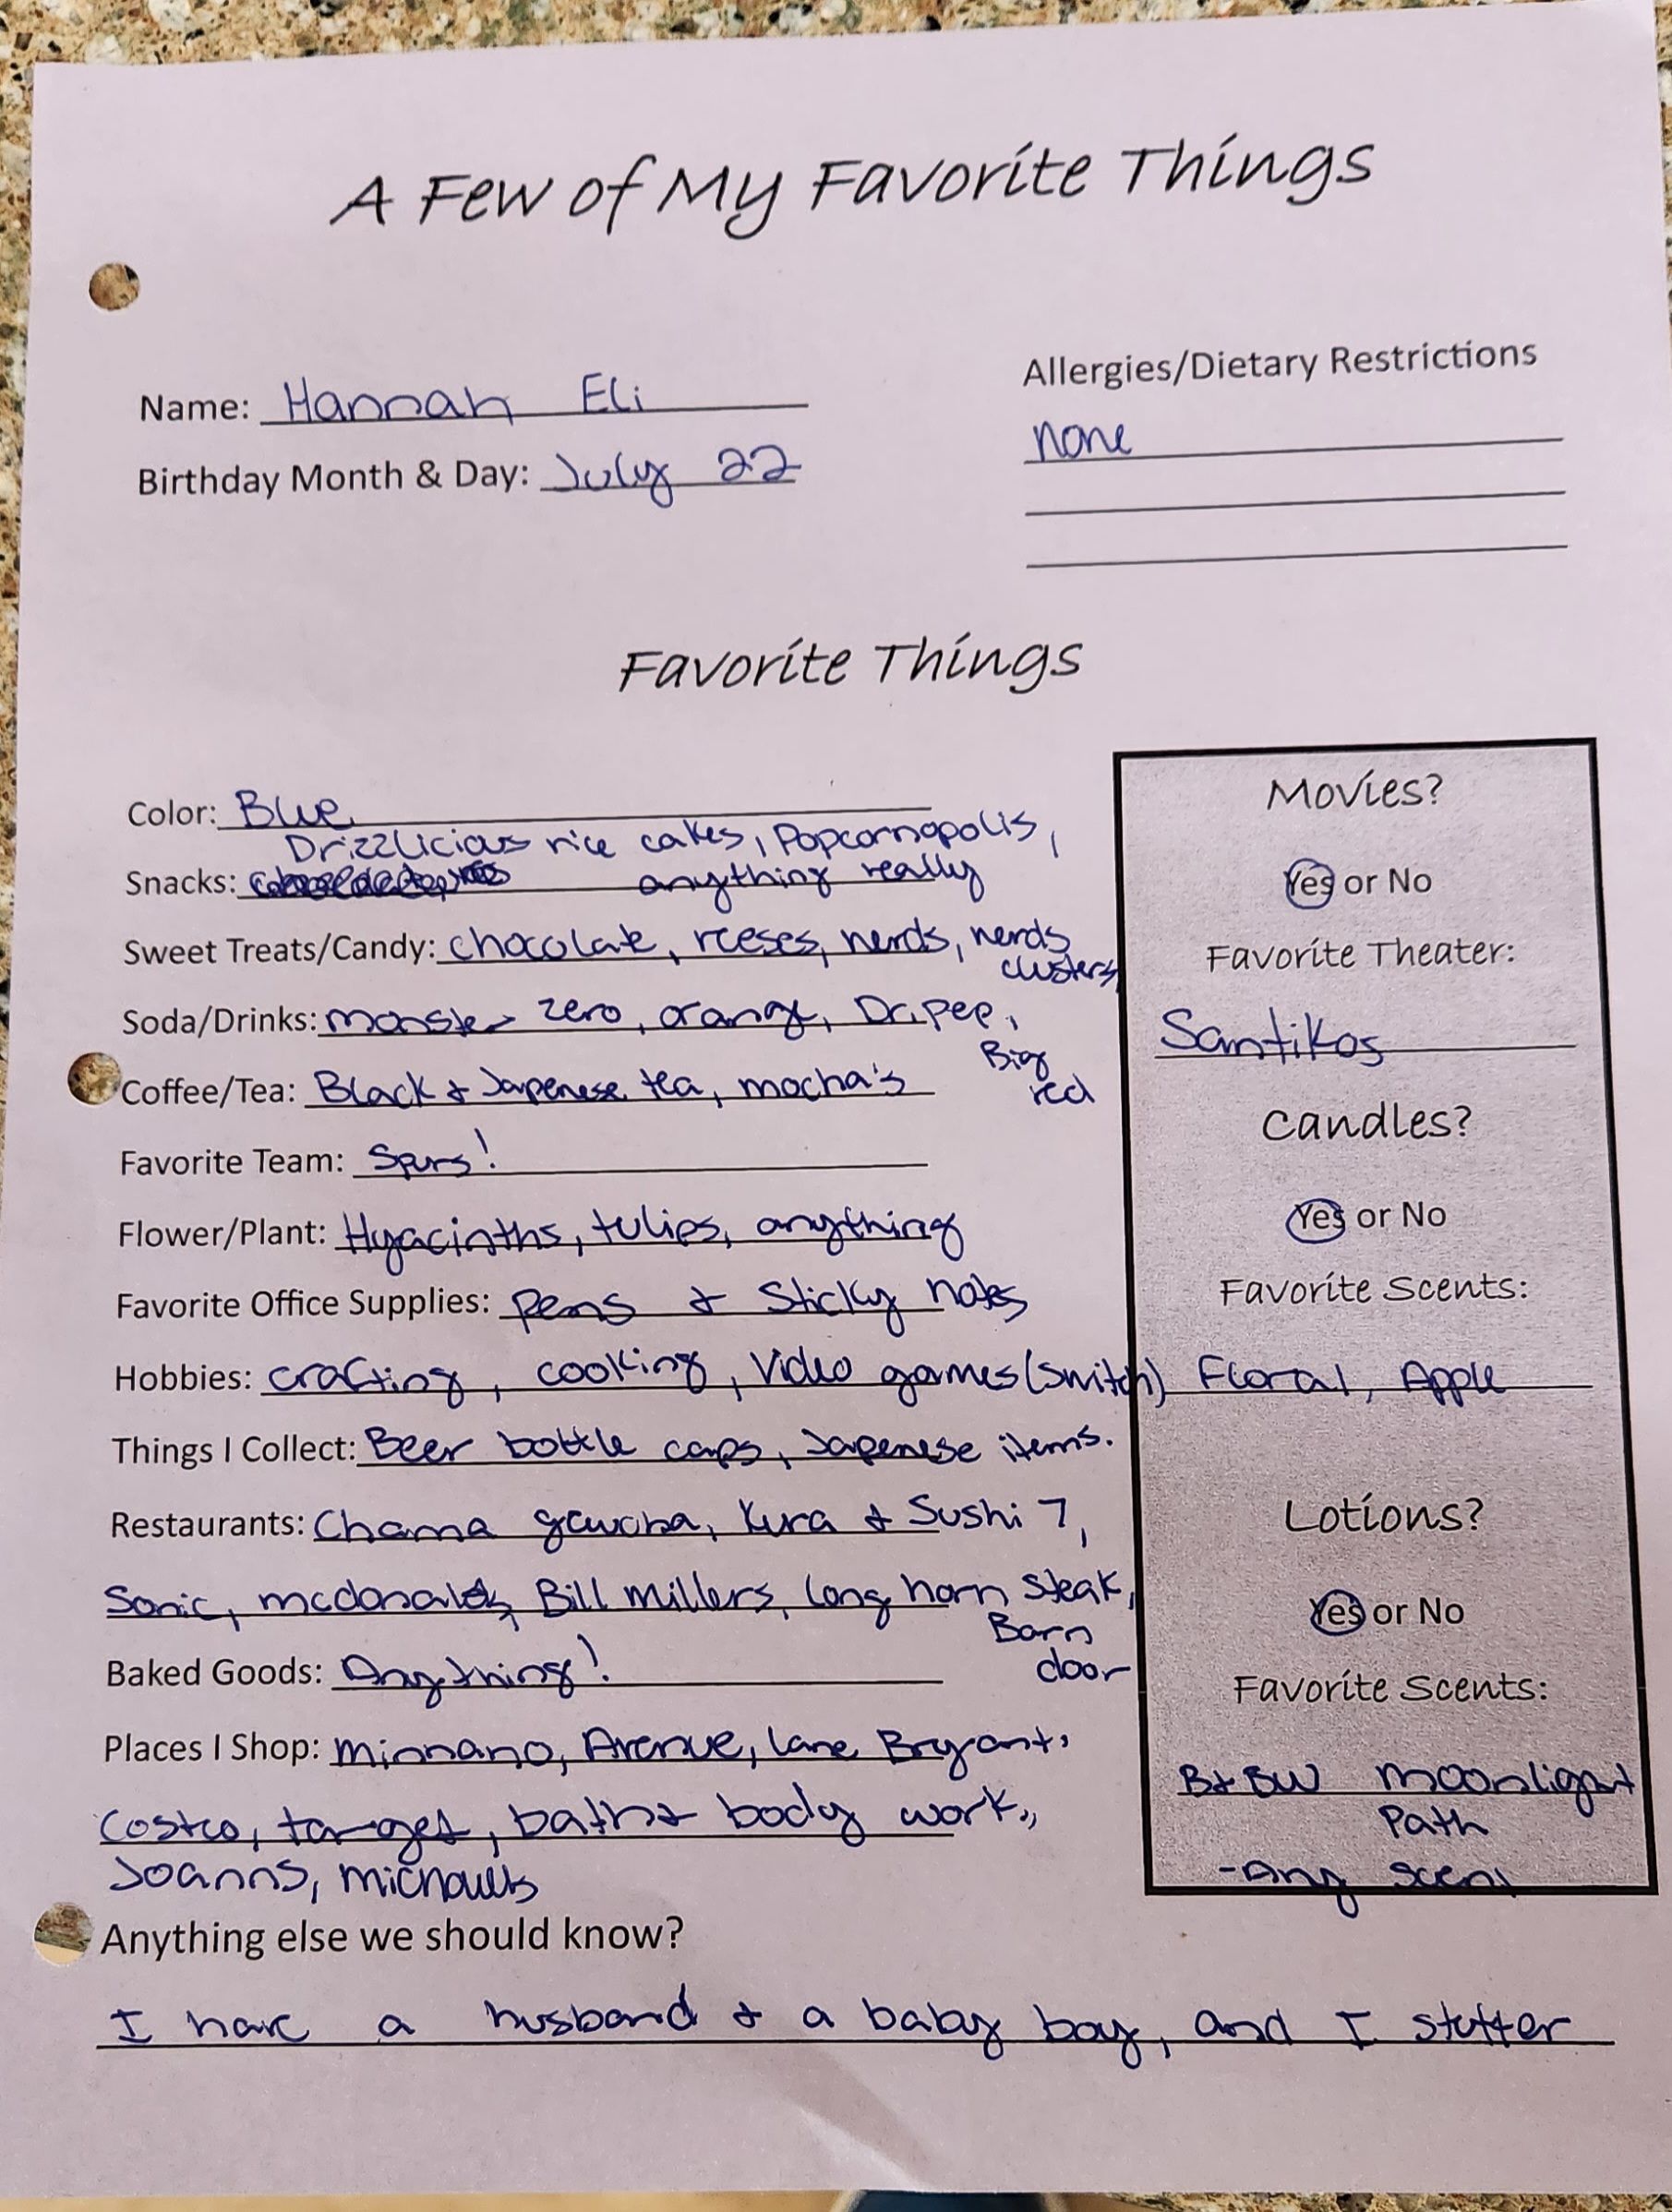 A Few of My Favorite Things
Name: Hannah Eli
Birthday Month & Day: July 22
Allergies/Dietary Restrictions
none
Favorite Things
Color: Blue
Drizzlicious rice cakes, Popcornopolis,
Snacks: anything really
Sweet Treats/Candy: chocolate, reeses, nerds, nerds
clusters,
Soda/Drinks: monster zero, orange, Dr. Pep,
Big
red
Coffee/Tea: Black & Japenese tea, mocha's
Favorite Team: Spurs!
Flower/Plant: Hyacinths, tulips, anything
Favorite Office Supplies: pens & Sticky notes
Hobbies: crafting, cooking, Video games (switch)
Things I Collect: Beer bottle caps, Japenese items.
Restaurants: Chama gaucha, Kura & Sushi 7,
Sonic, mcdonalds, Bill millers, long horn steak,
Barn
door
Baked Goods: Anything!
Places I Shop: minnano, Avenue, lane Bryant,
Costco, target, bath & body work,
Joanns, michaels
Movies?
Yes or No
Favorite Theater:
Santikos
Candles?
Yes or No
Favorite Scents:
Floral, Apple
Lotions?
Yes or No
Favorite Scents:
B&BW moonlight
Path
-Any scent
Anything else we should know?
I have a husband & a baby boy, and I stutter